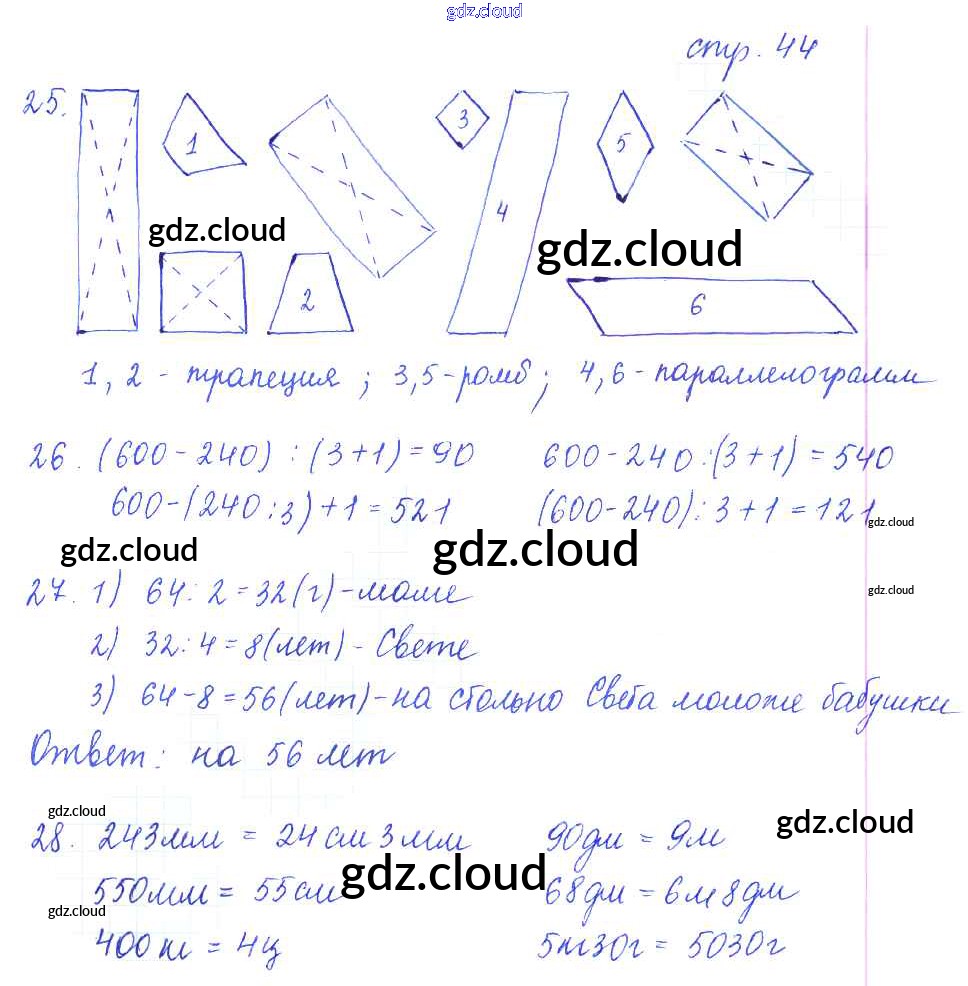 gdz.cloud
стр. 44
25.
1
3
5
4
gdz.cloud
gdz.cloud
2
6
1, 2 - трапеция ; 3,5 - ромб ; 4,6 - параллелограмм
26. (600 - 240) : (3+1) = 90 600 - 240 : (3+1) = 540
600 - (240 : 3) + 1 = 521 (600 - 240) : 3 + 1 = 121
gdz.cloud
gdz.cloud gdz.cloud
27. 1) 64 : 2 = 32 (г) - маме
gdz.cloud
2) 32 : 4 = 8 (лет) - Свете
3) 64 - 8 = 56 (лет) - на столько Света моложе бабушки
Ответ: на 56 лет
gdz.cloud
28. 243 мм = 24 см 3 мм 90 дм = 9 м
gdz.cloud
gdz.cloud
550 мм = 55 см 68 дм = 6 м 8 дм
gdz.cloud
400 кг = 4 ц 5 кг 30 г = 5030 г